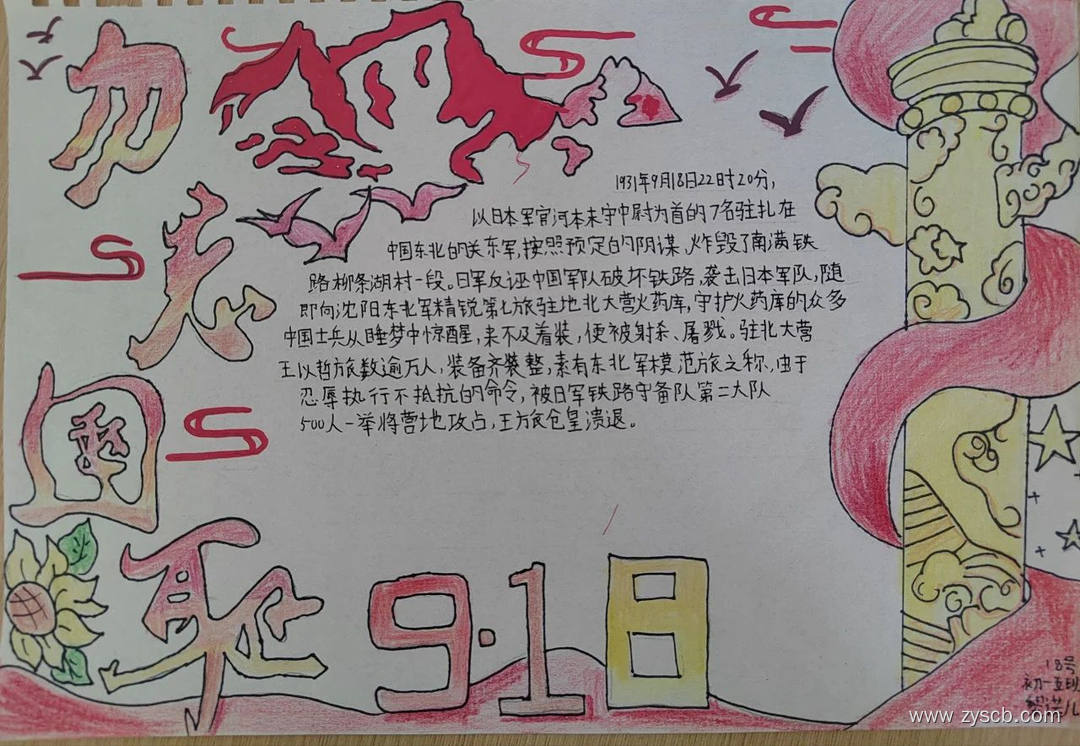 勿
忘
国
耻
9·18
1931年9月18日22时20分，
以日本军官河本末守中尉为首的7名驻扎在
中国东北的关东军，按照预定的阴谋，炸毁了南满铁
路柳条湖村一段。日军反诬中国军队破坏铁路，袭击日本军队，随
即向沈阳东北军精锐第七旅驻地北大营火药库，守护火药库的众多
中国士兵从睡梦中惊醒，来不及着装，便被射杀、屠戮。驻北大营
王以哲旅数逾万人，装备齐装整，素有东北军模范旅之称，由于
忍辱执行不抵抗的命令，被日军铁路守备队第二大队
500人一举将营地攻占，王旅仓皇溃退。
18号
初一五班
www.zyscb.com